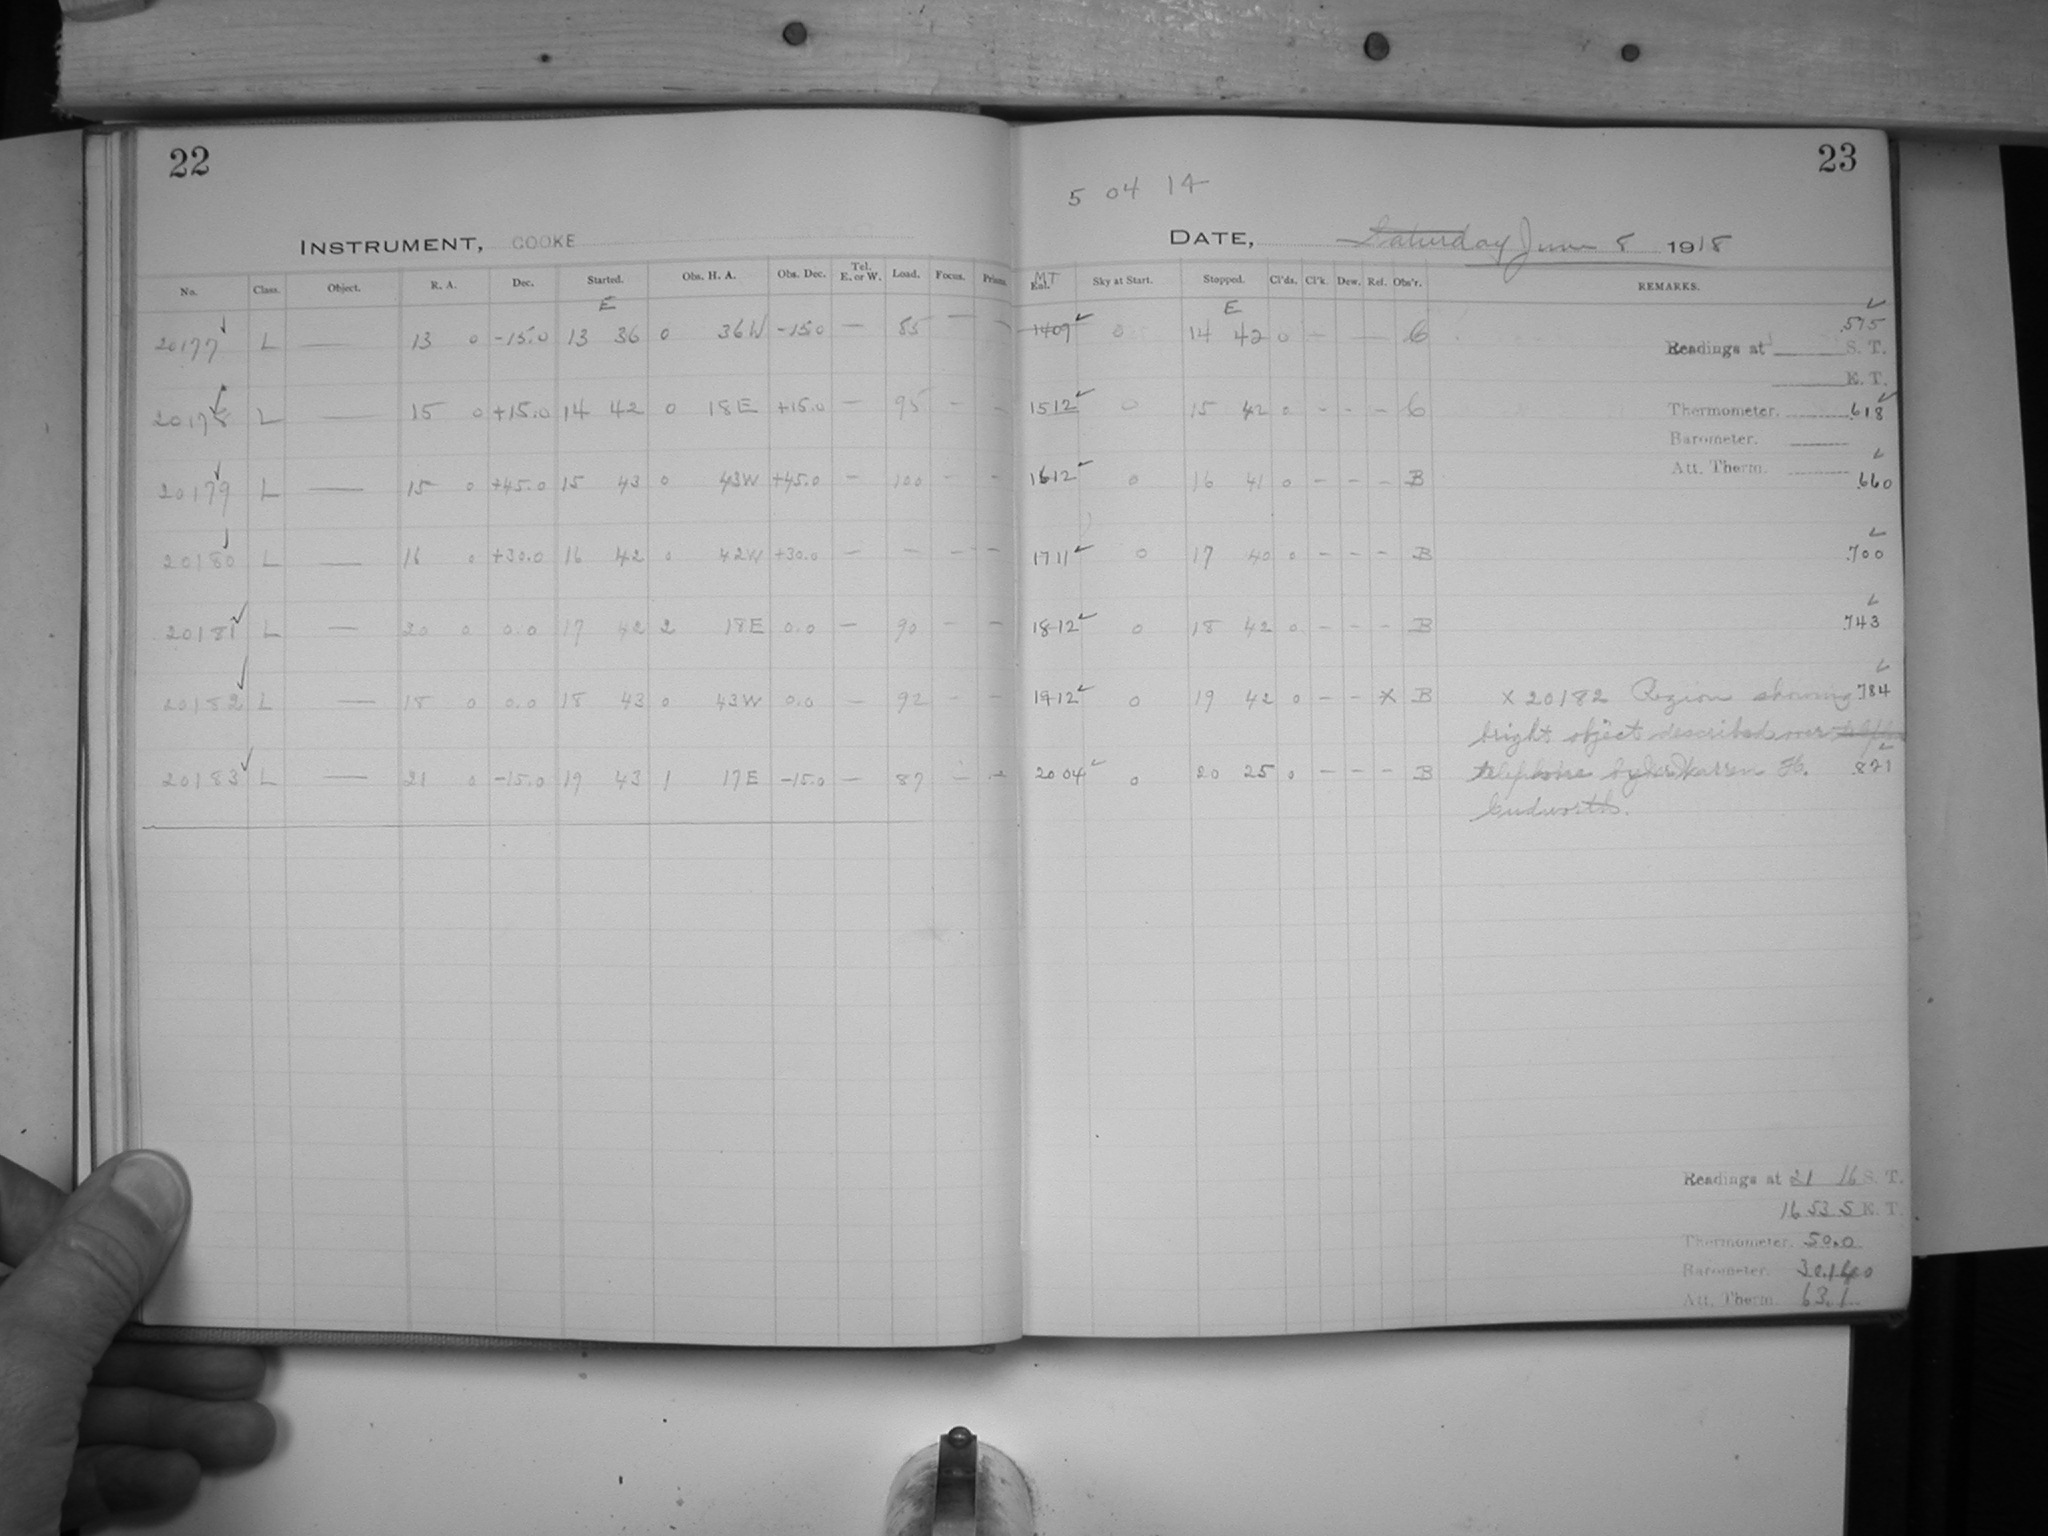 22
INSTRUMENT, COOKE
No. Class. Object. R. A. Dec. Started. Obs. H. A. Obs. Dec. Tel. E. or W. Load. Focus. Prism.
E
20177 L — 13 0 -15.0 13 36 0 36W -15.0 — 85 — —
20178 L — 15 0 +15.0 14 42 0 18E +15.0 — 95 — —
20179 L — 15 0 +45.0 15 43 0 43W +45.0 — 100 — —
20180 L — 16 0 +30.0 16 42 0 42W +30.0 — — — —
20181 L — 20 0 0.0 17 42 2 18E 0.0 — 90 — —
20182 L — 18 0 0.0 18 43 0 43W 0.0 — 92 — —
20183 L — 21 0 -15.0 19 43 1 17E -15.0 — 87 — —
23
5 04 14
DATE, Saturday June 8 1918
MT Sky at Start. Stopped. Cl'ds. Cl'k. Dew. Ref. Obs'r. REMARKS.
E
1409 0 14 42 0 — — 6 .575
Readings at S. T.
E. T.
1512 0 15 42 0 - - - 6 Thermometer. .618
Barometer.
Att. Therm.
1612 0 16 41 0 - - - B .660
1711 0 17 40 0 - - - B .700
1812 0 18 42 0 - - - B .743
1912 0 19 42 0 - - X B X 20182 Region showing .784
bright object described over
2004 0 20 25 0 - - - B telephone by Warren H. .821
Cudworth.
Readings at 21 16 S. T.
16 53 5 E. T.
Thermometer. 50.0
Barometer. 30.140
Att. Therm. 63.1